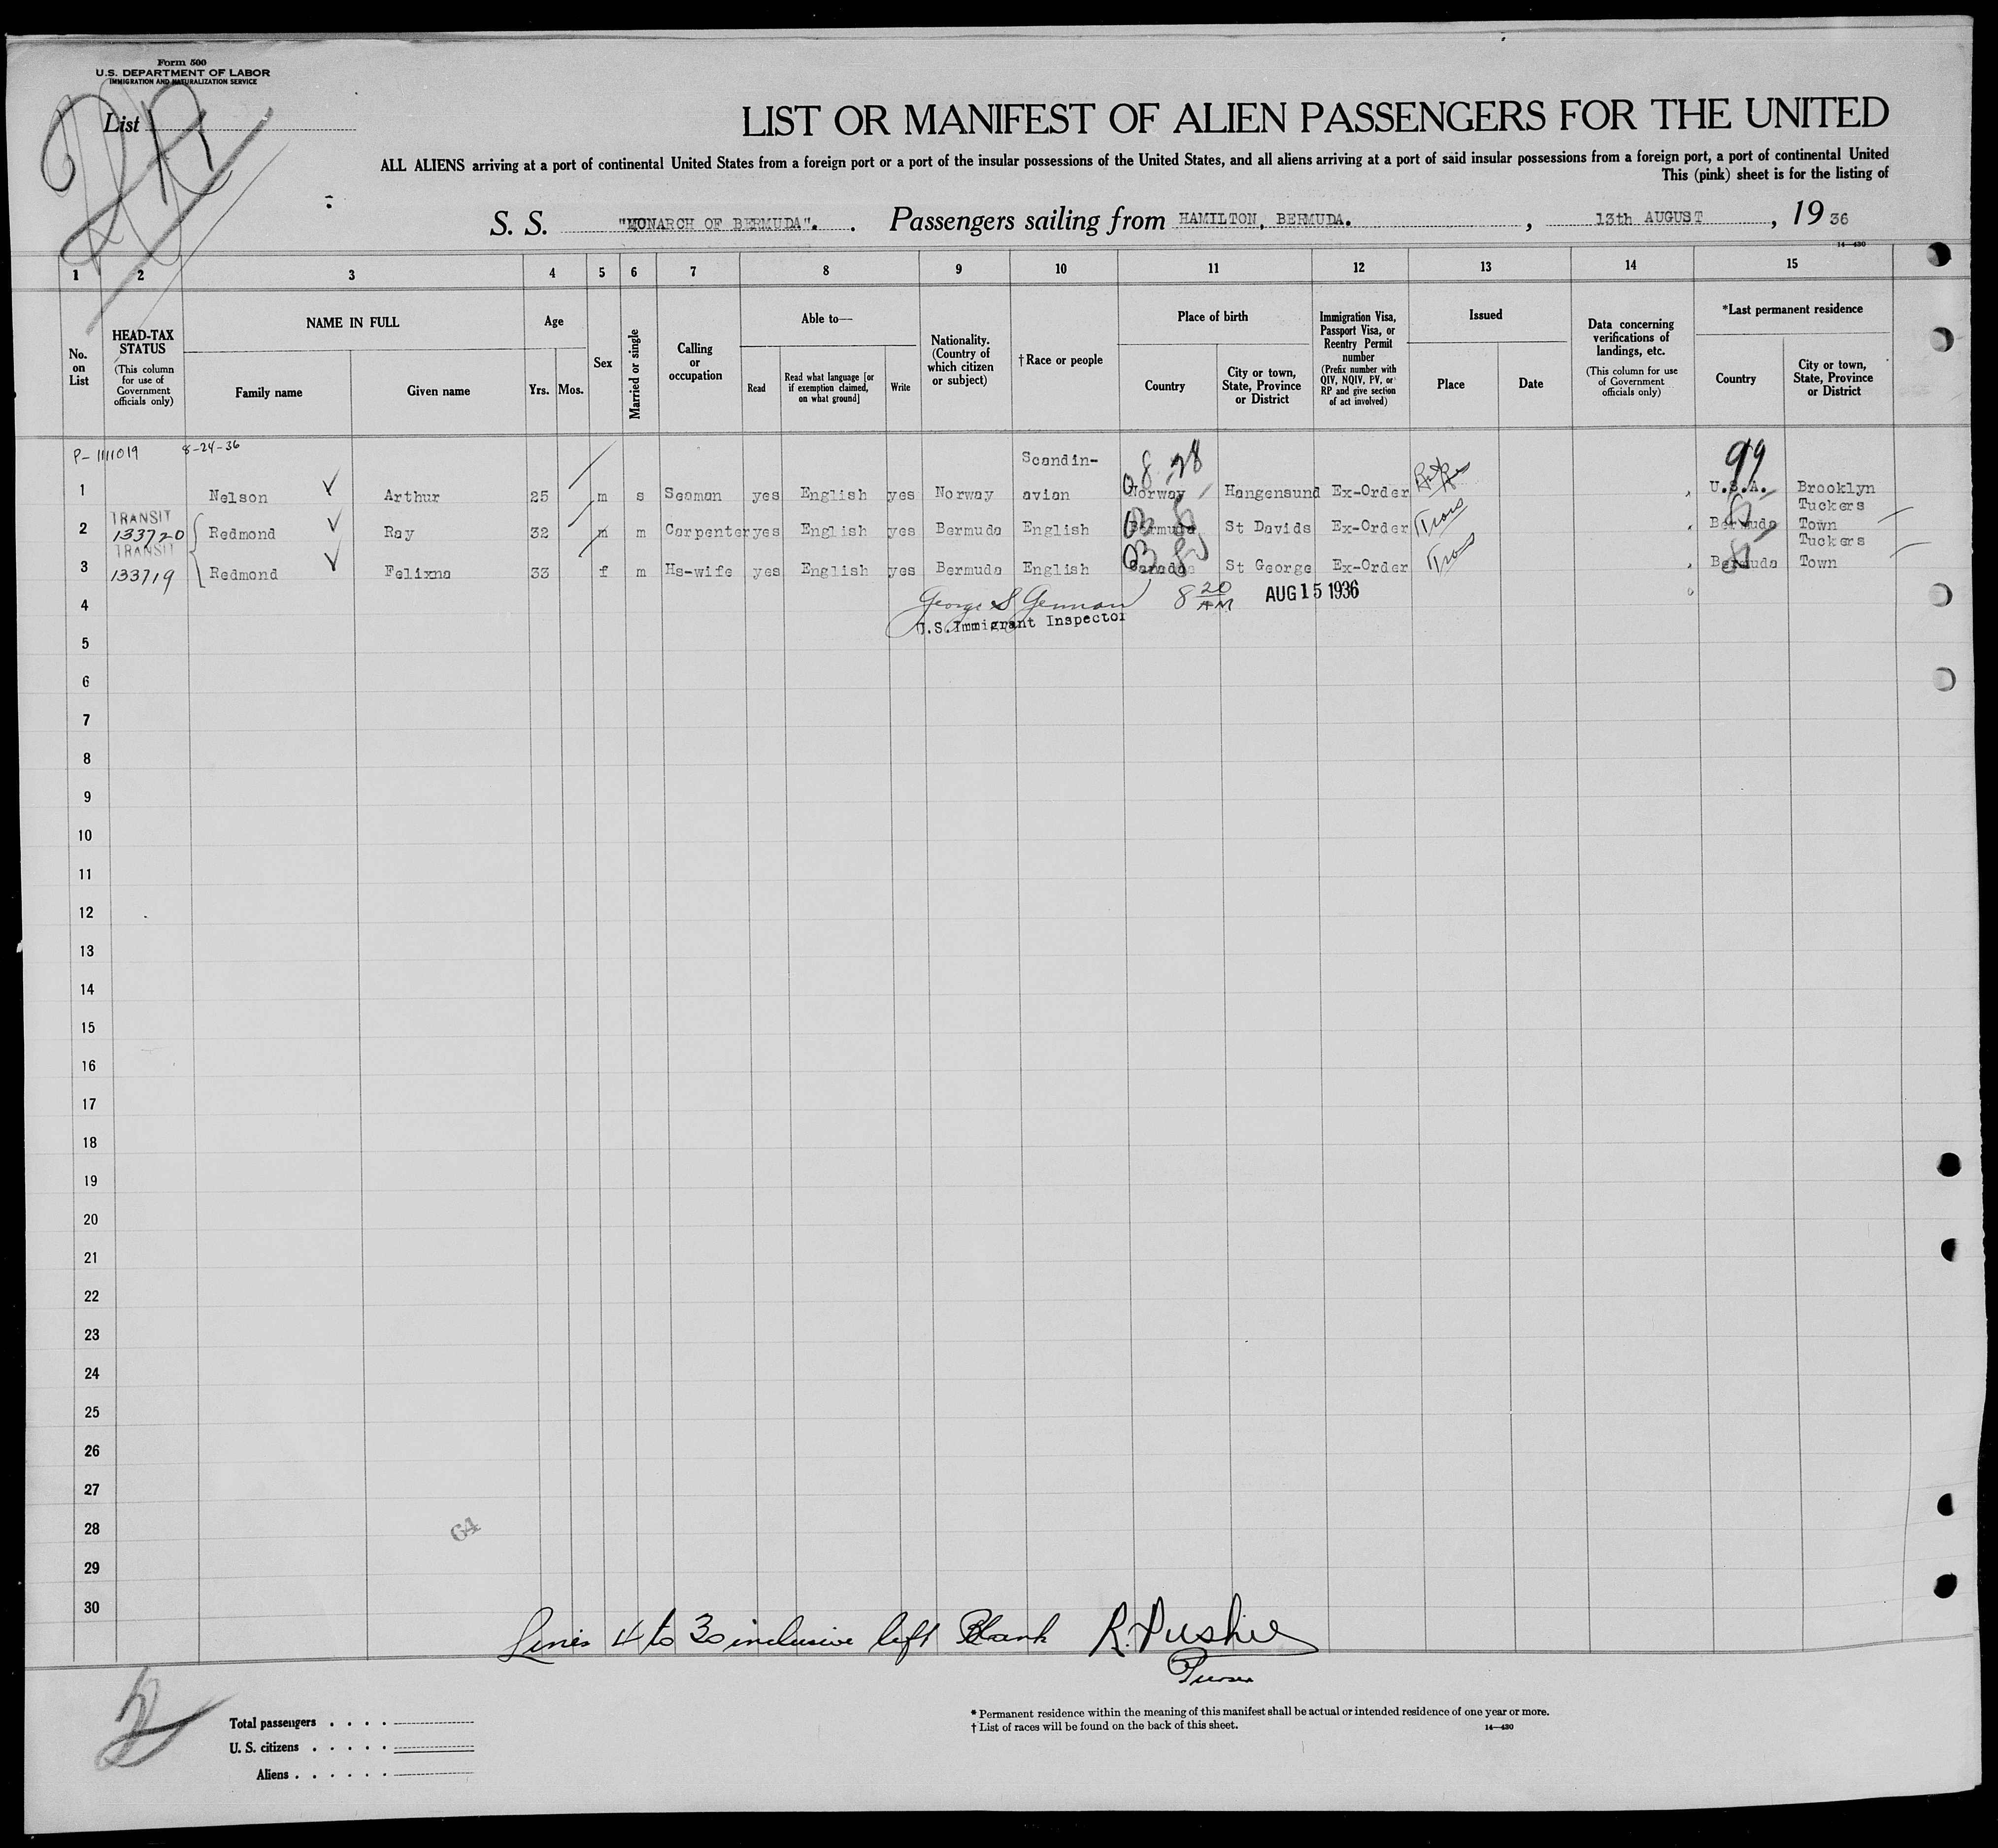 Form 500
U. S. DEPARTMENT OF LABOR
IMMIGRATION AND NATURALIZATION SERVICE
List
LIST OR MANIFEST OF ALIEN PASSENGERS FOR THE UNITED
ALL ALIENS arriving at a port of continental United States from a foreign port or a port of the insular possessions of the United States, and all aliens arriving at a port of said insular possessions from a foreign port, a port of continental United
This (pink) sheet is for the listing of
S. S. "MONARCH OF BERMUDA". Passengers sailing from HAMILTON, BERMUDA. , 13th AUGUST , 19 36
14—430
1 2 3 4 5 6 7 8 9 10 11 12 13 14 15
No. on List
HEAD-TAX STATUS
(This column for use of Government officials only)
NAME IN FULL
Family name
Given name
Age
Yrs. Mos.
Sex
Married or single
Calling or occupation
Able to—
Read
Read what language [or if exemption claimed, on what ground]
Write
Nationality. (Country of which citizen or subject)
†Race or people
Place of birth
Country
City or town, State, Province or District
Immigration Visa, Passport Visa, or Reentry Permit number
(Prefix number with QIV, NQIV, PV, or RP and give section of act involved)
Issued
Place
Date
Data concerning verifications of landings, etc.
(This column for use of Government officials only)
*Last permanent residence
Country
City or town, State, Province or District
P-1111019 8-24-36
Scandin-
99
1 Nelson Arthur 25 m s Seaman yes English yes Norway avian Norway Hangensund Ex-Order U.S.A. Brooklyn
TRANSIT
Tuckers
2 133720 Redmond Ray 32 m m Carpenter yes English yes Bermuda English Bermuda St Davids Ex-Order Trans Bermuda Town
TRANSIT
Tuckers
3 133719 Redmond Felixna 33 f m Hs-wife yes English yes Bermuda English St George Ex-Order Trans Bermuda Town
4 George S 8 20 AM AUG 15 1936
U.S. Immigrant Inspector
5
6
7
8
9
10
11
12
13
14
15
16
17
18
19
20
21
22
23
24
25
26
27
28
64
29
30
Lines 4 to 30 inclusive left Blank R.
Purser
Total passengers
U. S. citizens
Aliens
* Permanent residence within the meaning of this manifest shall be actual or intended residence of one year or more.
† List of races will be found on the back of this sheet.
14—430